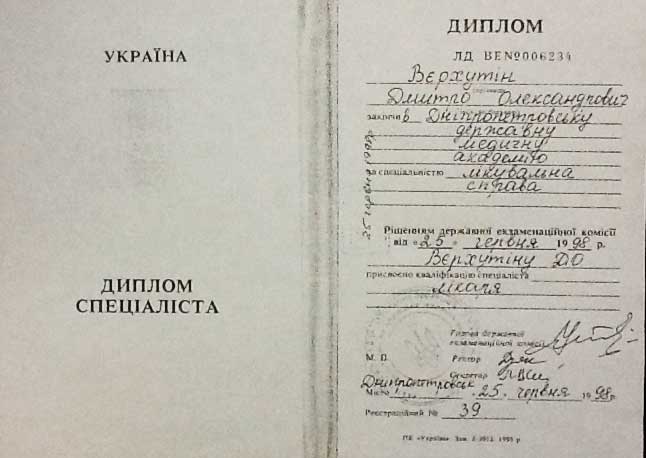 УКРАЇНА
ДИПЛОМ
СПЕЦІАЛІСТА
ДИПЛОМ
ЛД ВЕ№006234
Вєрхутін
Дмитро Олександрович
закінчив Дніпропетровську
державну
медичну
академію
за спеціальністю лікувальна
справа
Рішенням державної екзаменаційної комісії
від «25» червня 1998 р.
Вєрхутіну ДО
присвоєно кваліфікацію спеціаліста
лікаря
Голова державної
екзаменаційної комісії
М. П. Ректор
Секретар
Дніпропетровськ
Місто 25. червня 1998 р.
Реєстраційний № 39
25 червня 1998р